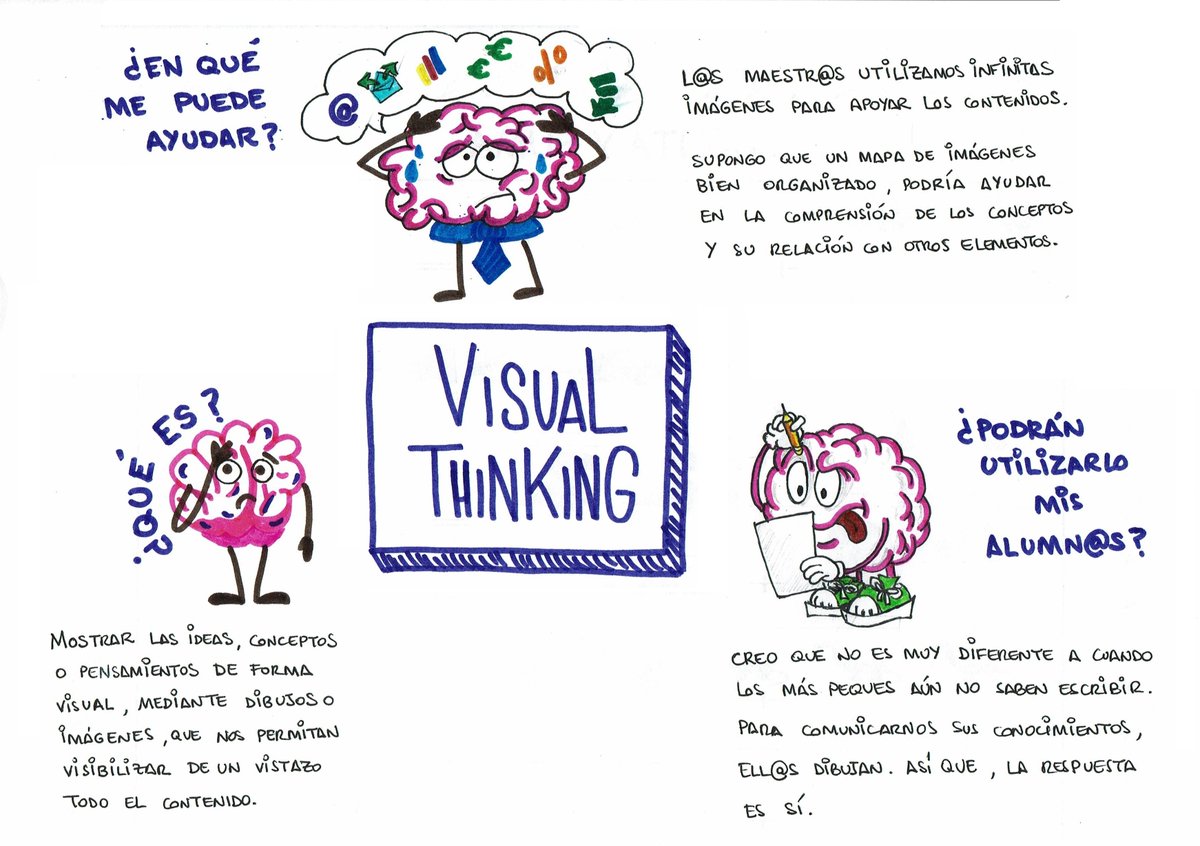 ¿EN QUÉ
ME PUEDE
AYUDAR?
@ € € %
L@S MAESTR@S UTILIZAMOS INFINITAS
IMÁGENES PARA APOYAR LOS CONTENIDOS.
SUPONGO QUE UN MAPA DE IMÁGENES
BIEN ORGANIZADO, PODRÍA AYUDAR
EN LA COMPRENSIÓN DE LOS CONCEPTOS
Y SU RELACIÓN CON OTROS ELEMENTOS.
VISUAL
THINKING
¿QUÉ ES?
MOSTRAR LAS IDEAS, CONCEPTOS
O PENSAMIENTOS DE FORMA
VISUAL, MEDIANTE DIBUJOS O
IMÁGENES, QUE NOS PERMITAN
VISIBILIZAR DE UN VISTAZO
TODO EL CONTENIDO.
¿PODRÁN
UTILIZARLO
MIS
ALUMN@S?
CREO QUE NO ES MUY DIFERENTE A CUANDO
LOS MÁS PEQUES AÚN NO SABEN ESCRIBIR.
PARA COMUNICARNOS SUS CONOCIMIENTOS,
ELL@S DIBUJAN. ASÍ QUE, LA RESPUESTA
ES SÍ.